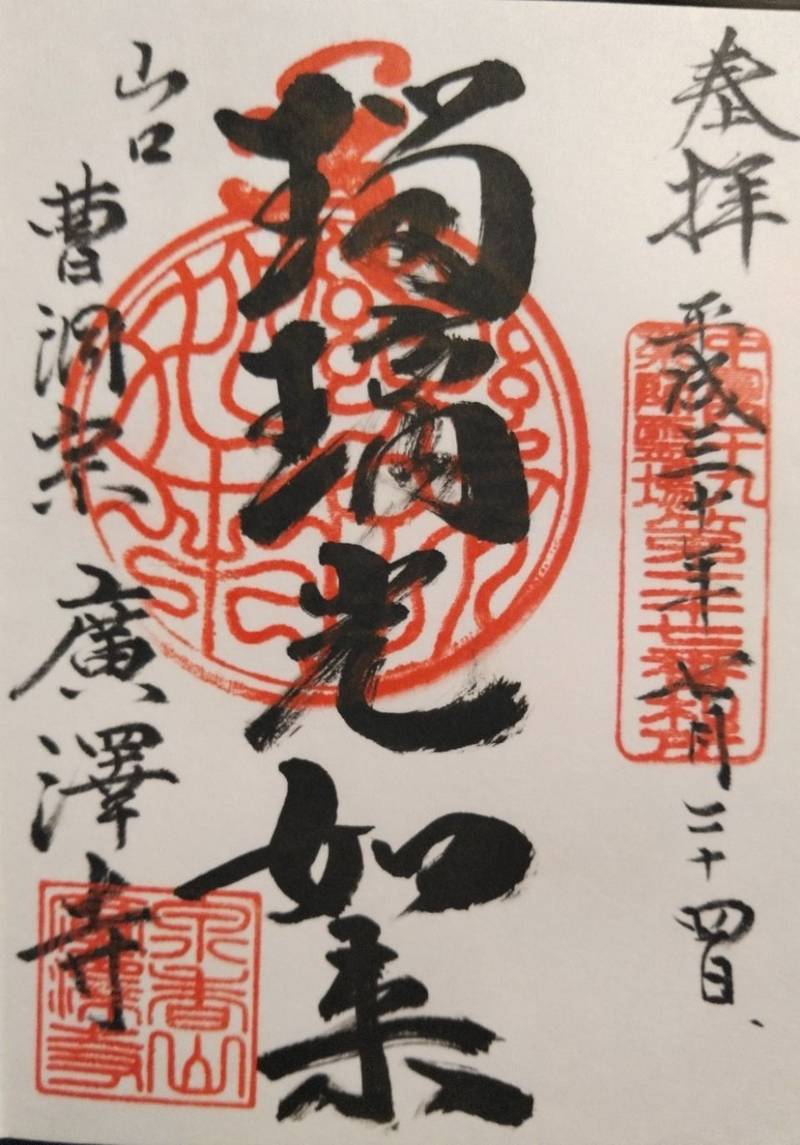 奉拝 平成三十年七月二十四日
中国四十九
薬師霊場第二十七番札所
瑠璃光如来
山口 曹洞宗 廣澤寺
泉香山
廣澤寺